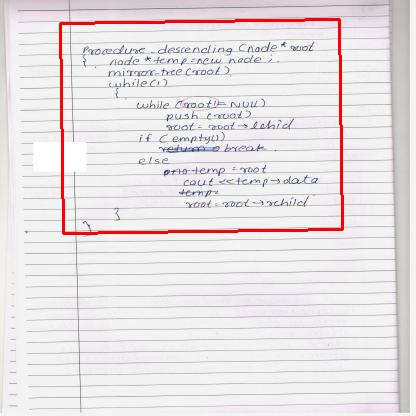 Procedure descending (node * root
{ node * temp = new node ;
mirror-tree (root)
while(1)
{
while (root != NULL)
push (root)
root = root → lchid
if (empty())
break
else
temp = root
cout << temp → data
root = root → rchild
}
}